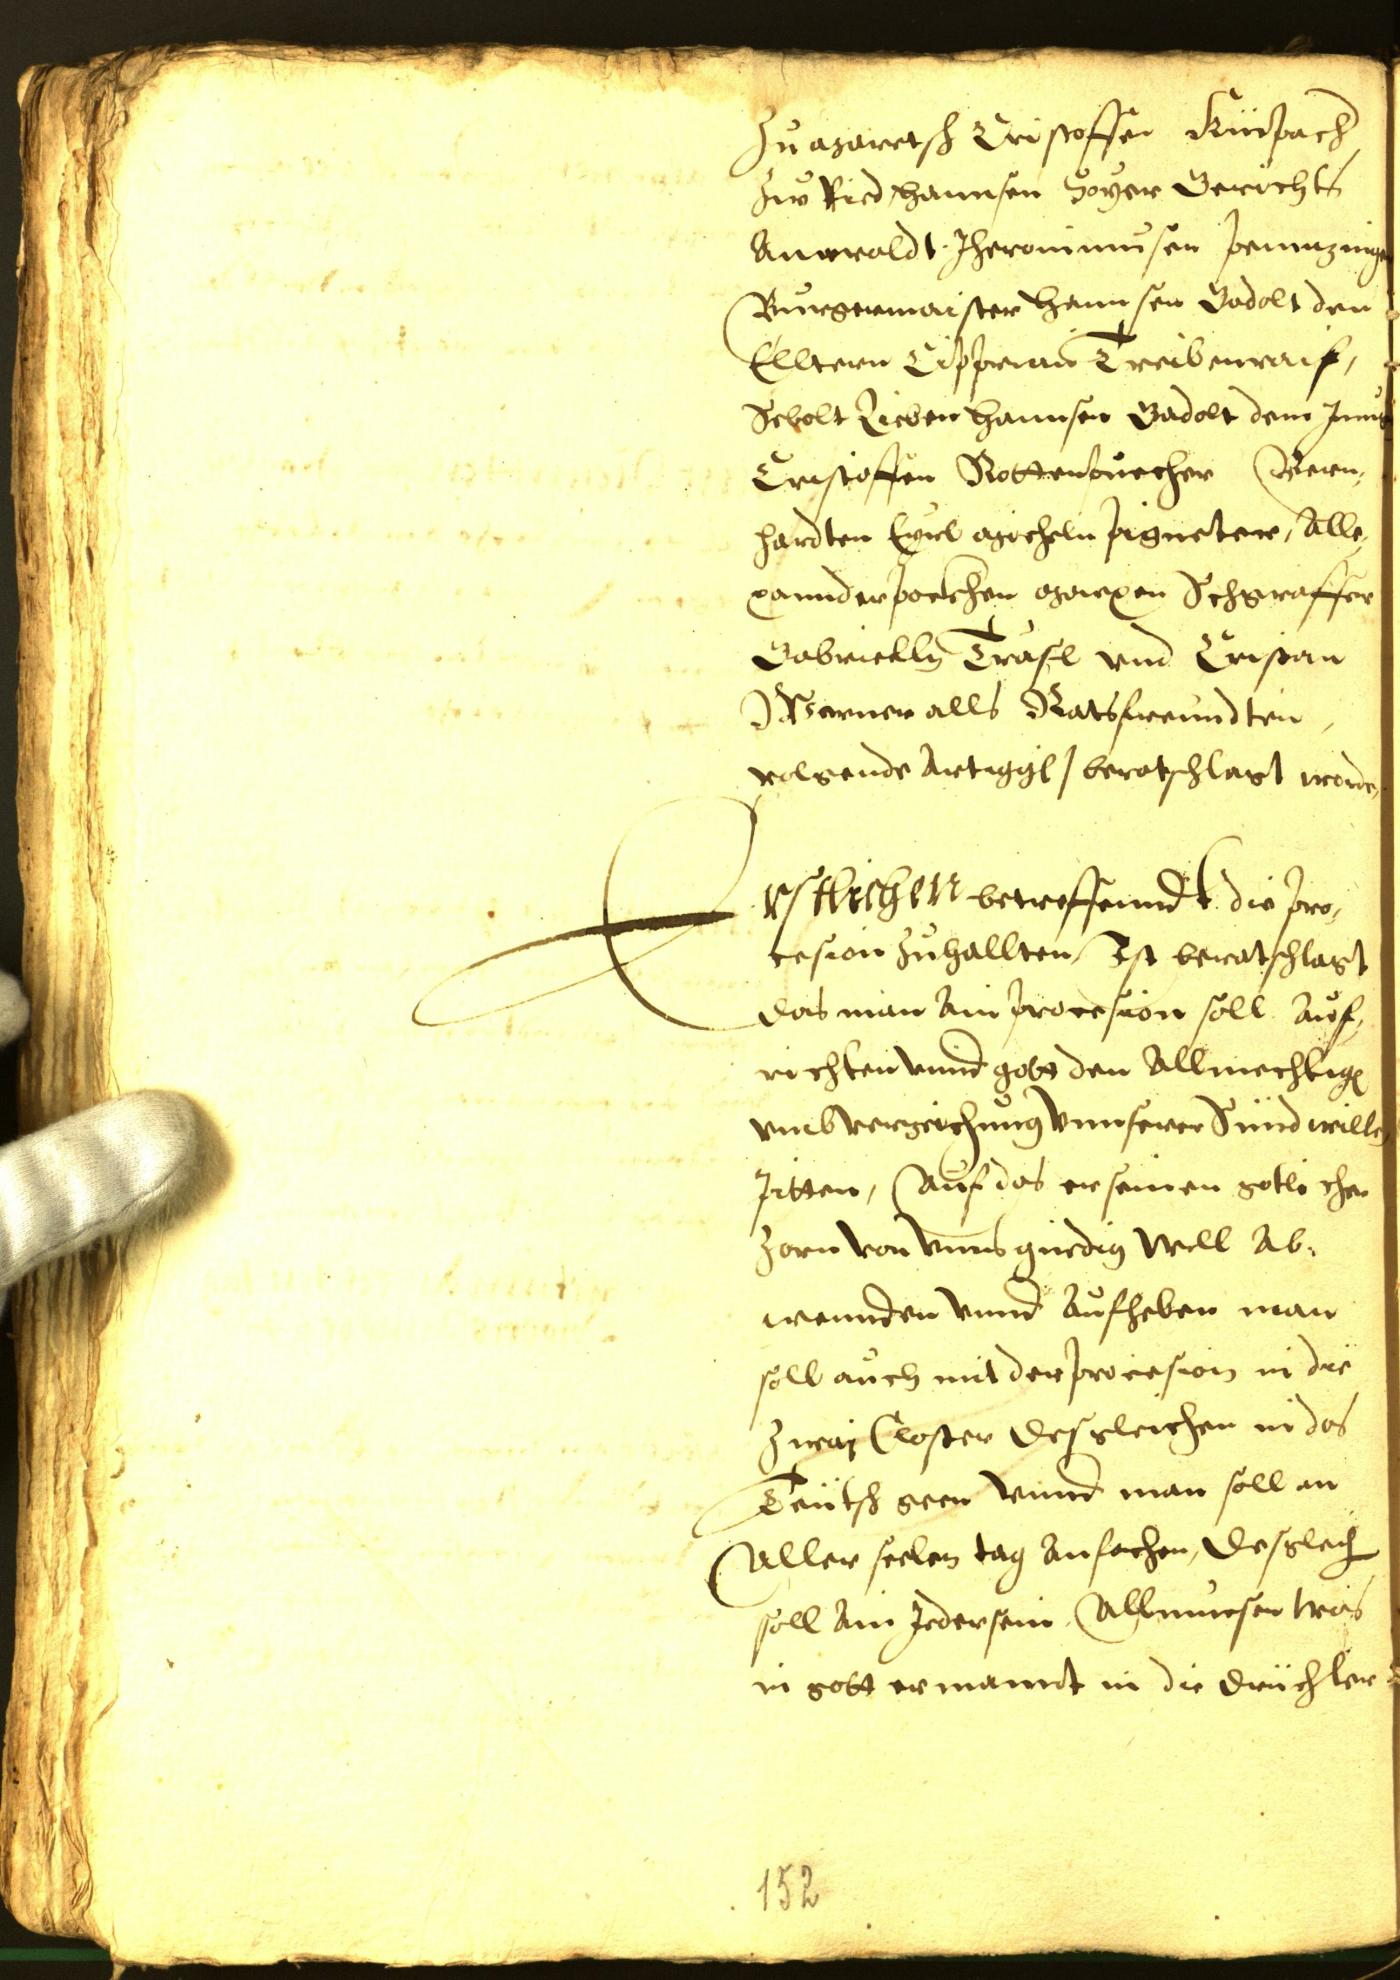 Zu Mareetsch Cristoffen Küepach
Zu Ried Hannsen Hoyer Gerichts
Anwaldt Jheronimusen Penntzinger
Burgermaister Hannsen Gadolt den
Elltern Ciprian Treibenraif,
Sebolt Lieben Hannsen Gadolt dem Jung
Cristoffen Rottenpuecher Bern,
hardten Eyrl Micheln Pigneter, Alle,
xannder Poetschen Marxen Schgraffer
Gabrielln Träfl vnd Cristan
Werner alls Ratsfreundten,
volgende Artiggl beratschlagt worde,
Erstlichen betreffenndt die pro,
cesion zuhallten, Ist beratschlagt
das man ain procesion soll auf,
richten vnnd gott den Allmechtigen
vmb verzeichung vnnserer Sünd willen
pitten, Auf das er seinen gotlichen
Zorn von vnns gnedig well ab,
wennden vnnd aufheben man
soll auch mit der procesion in die
zway Closter desgleichen in das
Teütsch geen vnnd man soll an
Aller seelen tag anfachen, desgleich
soll ain Jeder sein Allmuesen was
in gott ermannt in die Drüchlen
152